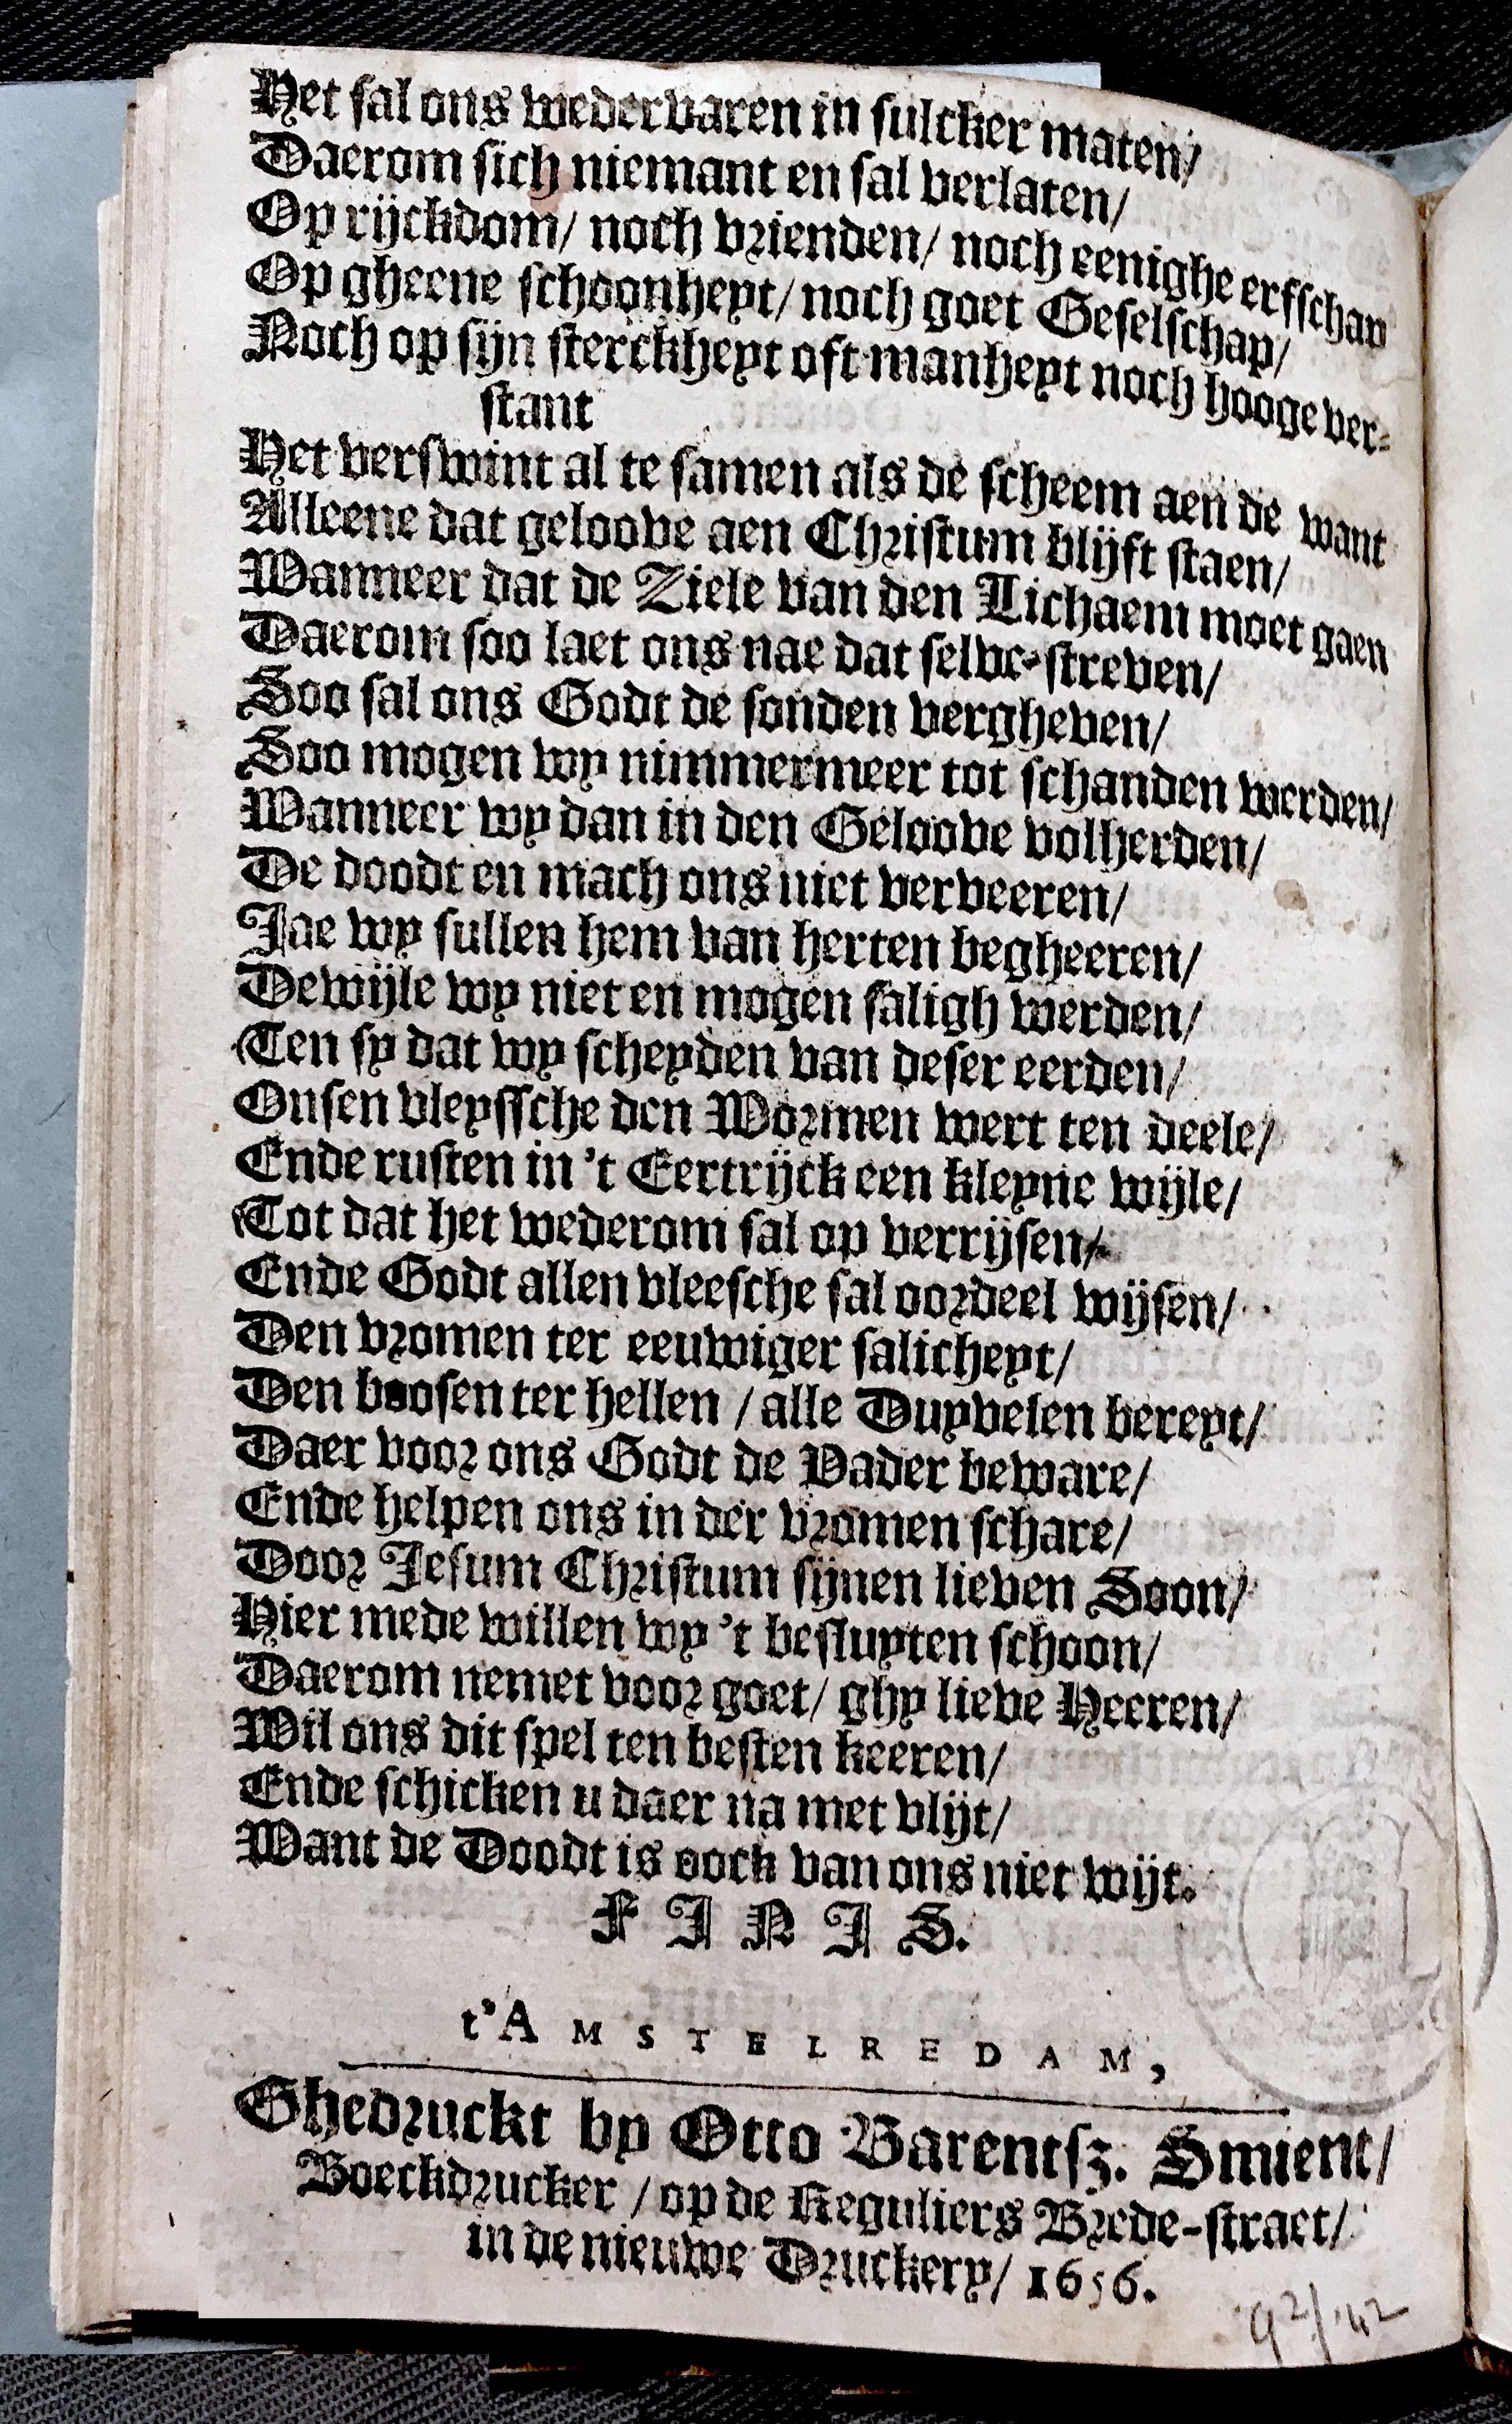 Het sal ons wedervaren in sulcker maten/
Daerom sich niemant en sal verlaten/
Op rijckdom/ noch vrienden/ noch eenighe erfschap
Op gheene schoonheyt/ noch goet Geselschap/
Noch op sijn sterckheyt oft manheyt noch hooge ver-
stant
Het verswint al te samen als de scheem aen de want
Alleene dat geloove aen Christum blijft staen/
Wanneer dat de Ziele van den Lichaem moet gaen
Daerom soo laet ons nae dat selve streven/
Soo sal ons Godt de sonden vergheven/
Soo mogen wy nimmermeer tot schanden werden/
Wanneer wy dan in den Geloove volherden/
De doodt en mach ons niet verveeren/
Jae wy sullen hem van herten begheeren/
Dewijle wy niet en mogen saligh werden/
Ten sy dat wy scheyden van deser eerden/
Onsen vleyssche den Wormen wert ten deele/
Ende rusten in 't Eertrijck een kleyne wijle/
Tot dat het wederom sal op verrijsen/
Ende Godt allen vleesche sal oordeel wijsen/
Den vromen ter eeuwiger salicheyt/
Den boosen ter hellen / alle Duyvelen bereyt/
Daer voor ons Godt de Vader beware/
Ende helpen ons in der vromen schare/
Door Jesum Christum sijnen lieven Soon/
Hier mede willen wy 't besluyten schoon/
Daerom nemet voor goet/ ghy lieve Heeren/
Wil ons dit spel ten besten keeren/
Ende schicken u daer na met vlijt/
Want de Doodt is oock van ons niet wijt.
FINIS.
t'AMSTELREDAM,
Ghedruckt by Otto Barentsz. Smient/
Boeckdrucker / op de Reguliers Brede-straet/
in de nieuwe Druckery/ 1656.